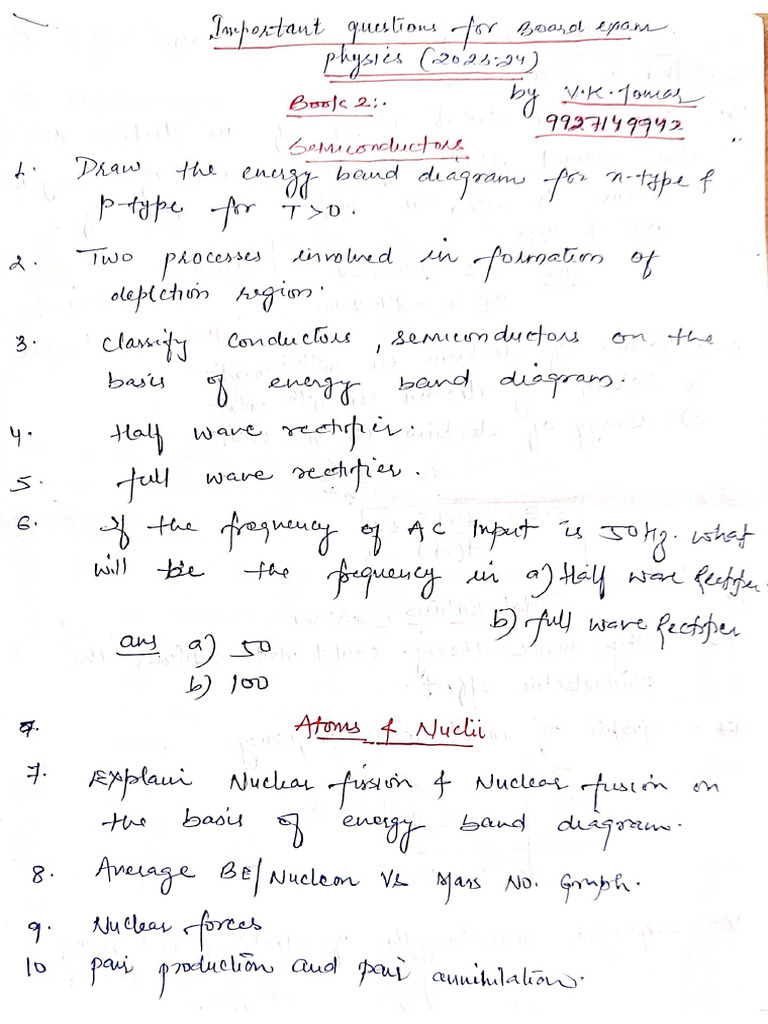 Important questions for Board exam
physics (2023-24)
by V.K. Tomar
Book 2:.
9927149942
Semiconductors
1. Draw the energy band diagram for n-type &
p-type for T>0.
2. Two processes involved in formation of
depletion region.
3. Classify conductors, semiconductors on the
basis of energy band diagram.
4. Half wave rectifier.
5. full wave rectifier.
6. If the frequency of AC Input is 50Hz. what
will be the frequency in a) Half wave Rectifier.
b) full wave Rectifier
ans a) 50
b) 100
Atoms & Nuclii
7. Explain Nuclear fission & Nuclear fusion on
the basis of energy band diagram.
8. Average BE/Nucleon Vs Mass No. Graph.
9. Nuclear forces
10 pair production and pair annihilation.